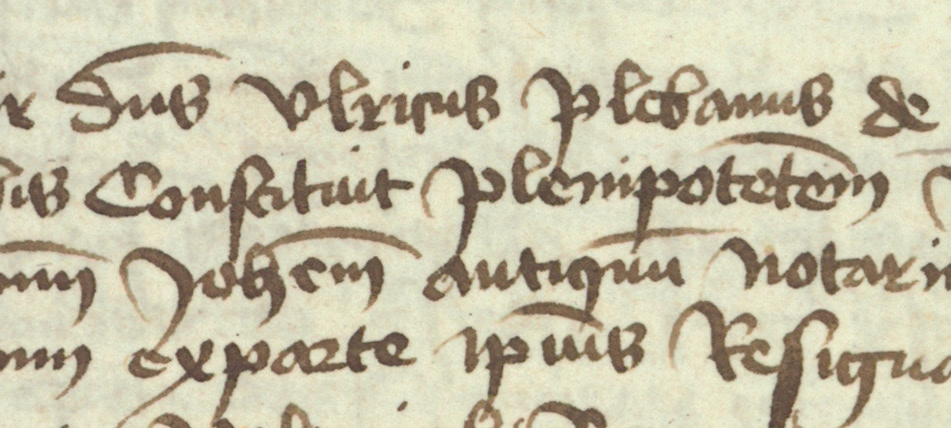 dns Ulricus Plebanus de
Constituit Plenipotetem
Johem antiquu Notari
exparte ipius Resigna